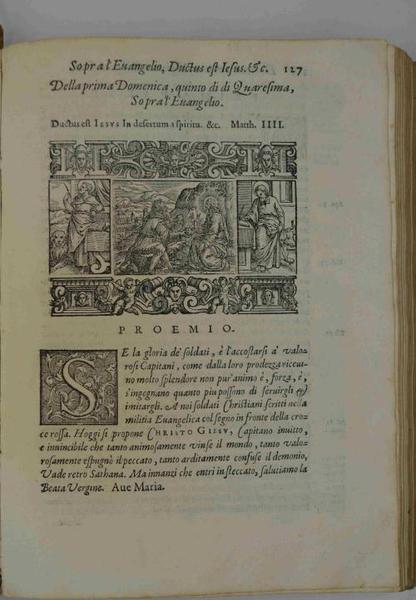 Sopra l'Euangelio, Ductus est Iesus. &c. 127
Della prima Domenica, quinto dì di Quaresima,
Sopra l'Euangelio.
Ductus est IESVS In desertum a spiritu. &c. Matth. IIII.
PROEMIO.
SE la gloria de' soldati, è l'accostarsi a' valo-
rosi Capitani, come dalla loro prodezza riceui-
no molto splendore non pur'animo è, forza, è,
s'ingegnano quanto piu possono di seruirgli &
imitargli. A noi soldati Christiani scritti nella
militia Euangelica col segno in fronte della cro-
ce rossa. Hoggi si propone CHRISTO GIESV, Capitano inuitto,
e inuincibile che tanto animosamente vinse il mondo, tanto valo-
rosamente espugnò il peccato, tanto arditamente confuse il demonio,
Vade retro Sathana. Ma innanzi che entri in steccato, salutiamo la
Beata Vergine. Aue Maria.